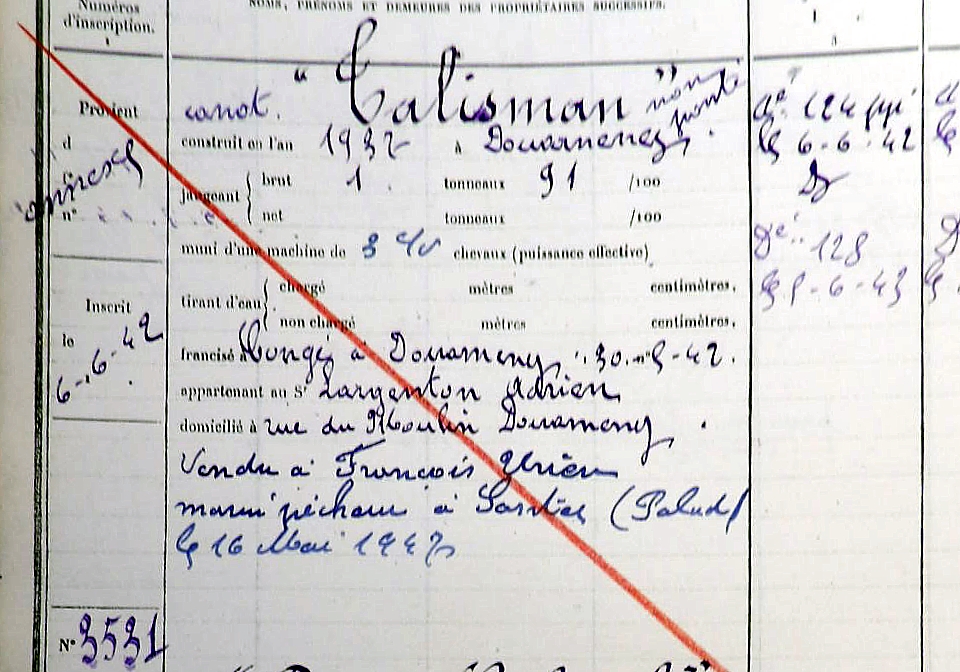 Numéros
d'inscription.
NOMS, PRÉNOMS ET DEMEURES DES PROPRIÉTAIRES SUCCESSIFS.
Provient
d
f°
n°
Inscrit
le
6-6-42
canot. "Talisman" non ponté
construit en l'an 1932 à Douarnenez,
jaugeant { brut 1 tonneaux 91 /100
net tonneaux /100
muni d'une machine de 3 chevaux (puissance effective)
tirant d'eau { chargé mètres centimètres,
non chargé mètres centimètres,
francisé Congé à Douarnenez, 30-5-42.
appartenant au Sr Largenton Adrien
domicilié à rue du Moulin Douarnenez,
Vendu à François
marin pêcheur à (Palud)
le 16 Mai 1947
124
le 6-6-42
128
le 5-6-43
N° 3531